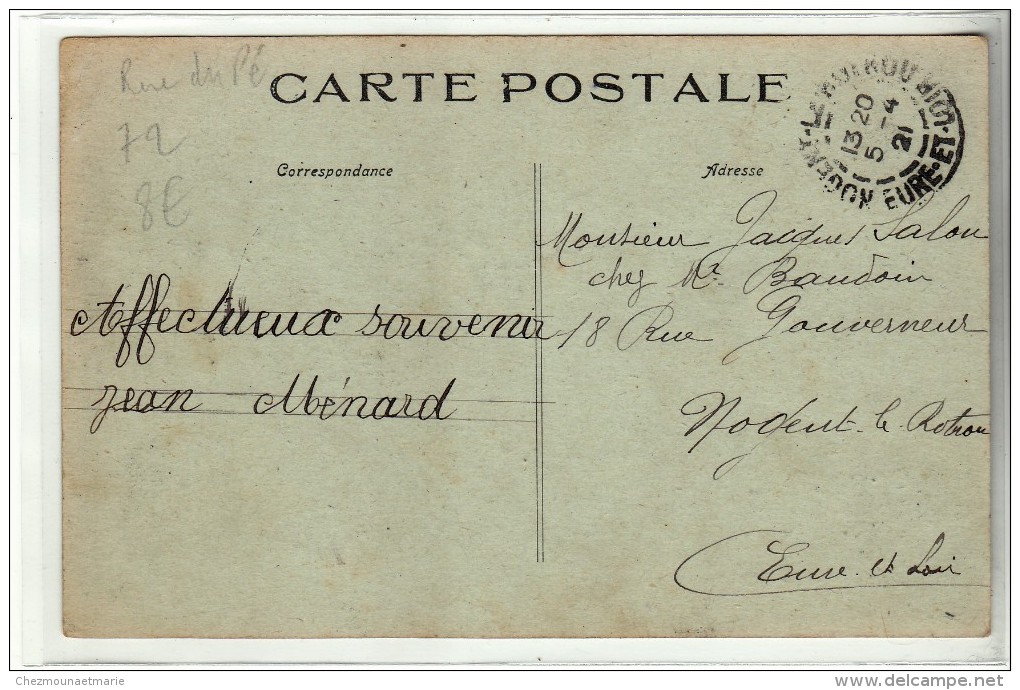 Rue du Pé
72
8€
CARTE POSTALE
Correspondance
Adresse
13 20
5 - 4
21
EURE-ET-LOIR
Affectueux souvenir
Jean Ménard
Monsieur Jacques Salou
chez Mr Baudoin
18 Rue Gouverneur
Nogent-le-Rotrou
Eure et Loir
Chezmounaetmarie
delcampe.net